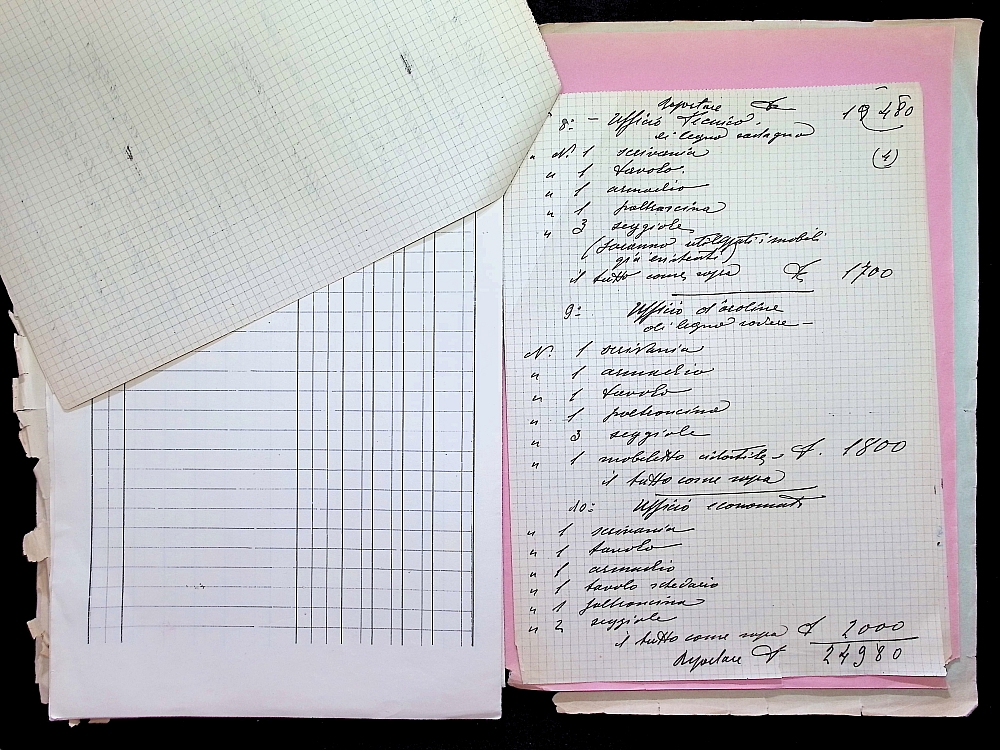 Riportare £ 19480
8° - Ufficio Tecnico.
di legno castagno
(4)
" N. 1 scrivania
" 1 tavolo.
" 1 armadio
" 1 poltroncina
" 3 seggiole
(saranno utilizzati i mobili
già esistenti)
il tutto come sopra £ 1700
9° Ufficio d'ordine
di legno rovere -
N. 1 scrivania
" 1 armadio
" 1 tavolo
" 1 poltroncina
" 3 seggiole
" 1 mobiletto £. 1800
il tutto come sopra
10° Ufficio economato
" 1 scrivania
" 1 tavolo
" 1 armadio
" 1 tavolo schedario
" 1 poltroncina
" 2 seggiole
il tutto come sopra £ 2000
Riportare £ 24980